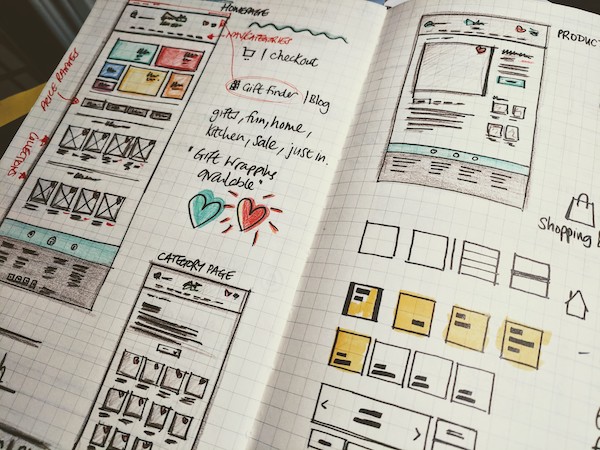 HOMEPAGE
NAV CATEGORIES
| checkout
Gift finder | Blog
gifts, fun, home,
kitchen, sale, just in.
"Gift wrapping
available"
PRICE RANGES
CATEGORY PAGE
PRODUCT
Shopping